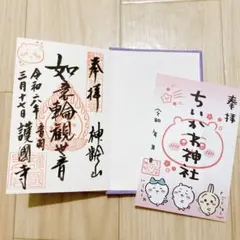 奉拝
神齢山
如意輪観世音
令和六年
三月十七日 護國寺
奉拝
ちいかわ神社
令和 年 月